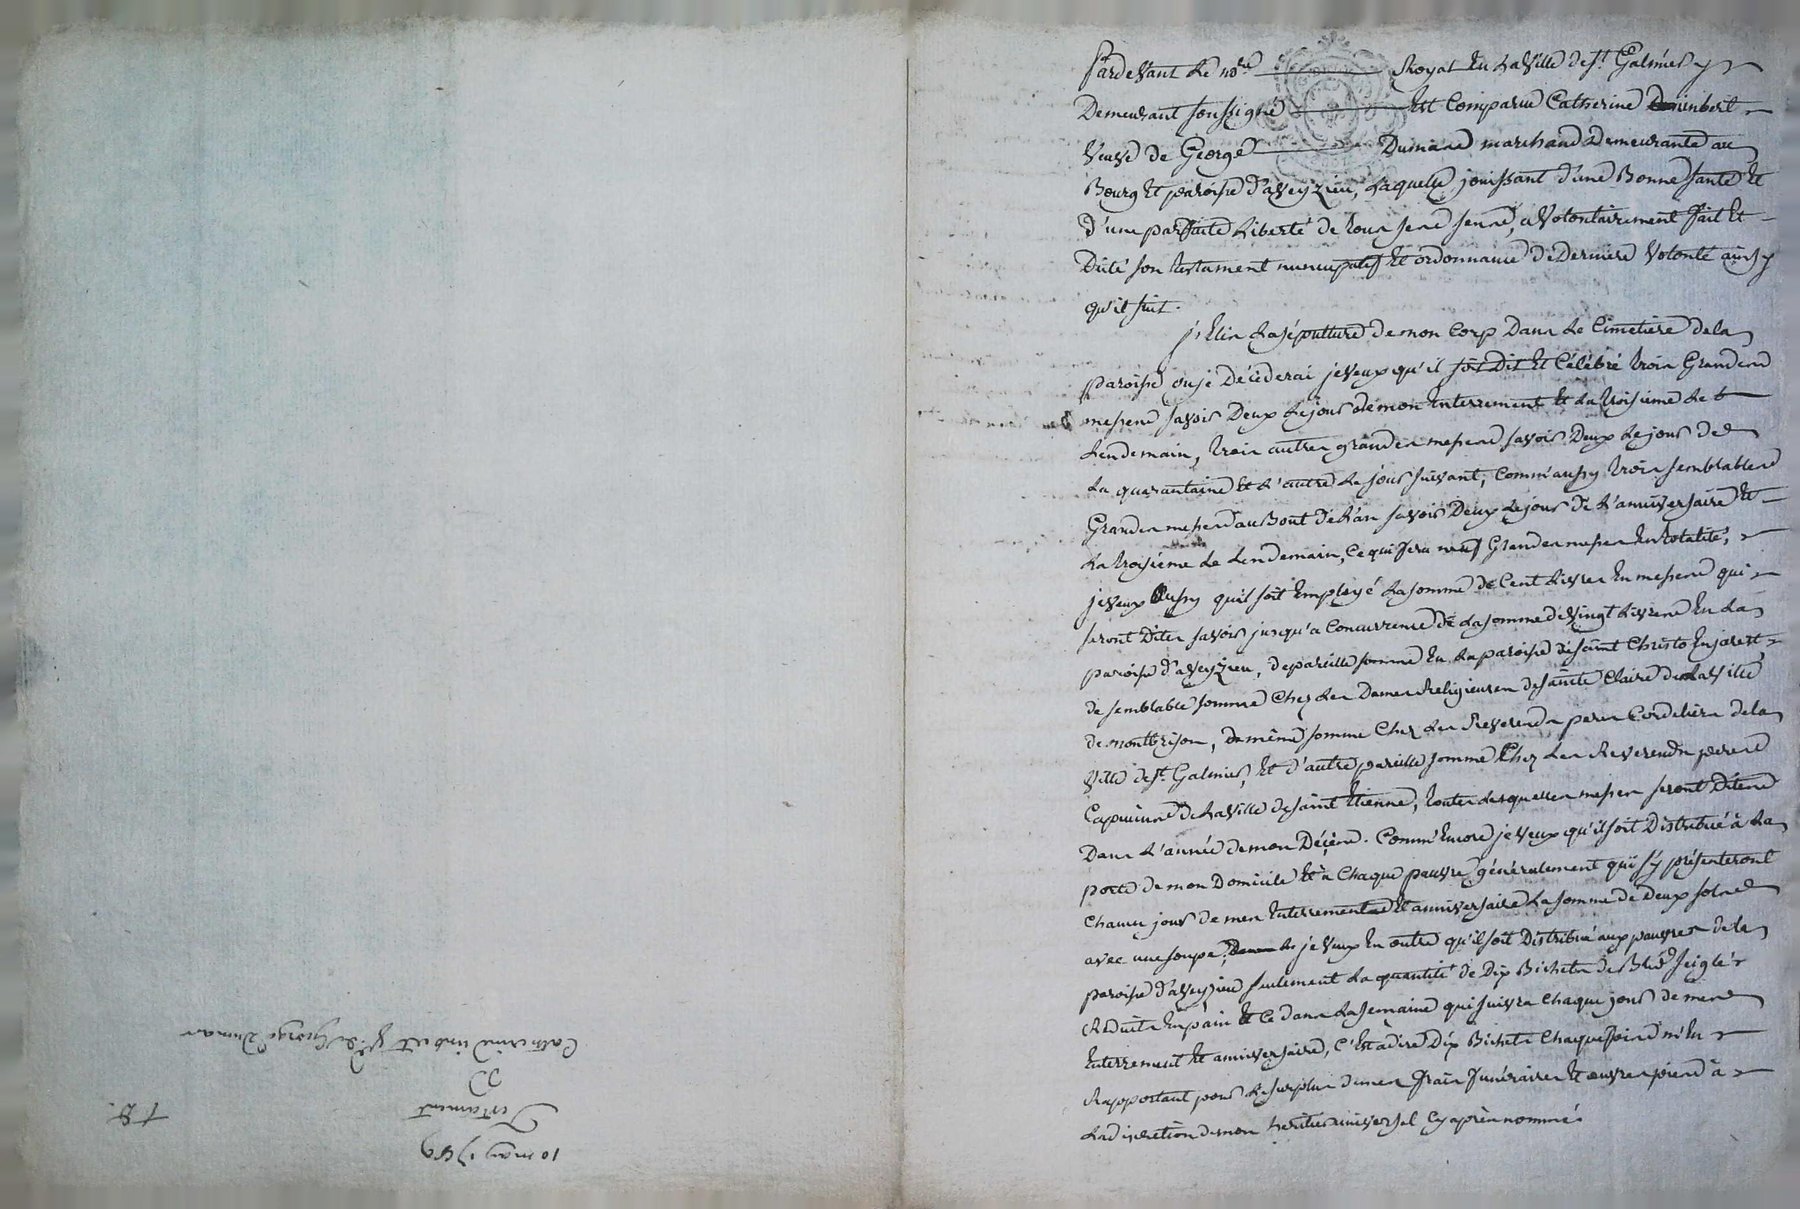 Pardevant Le no.re Royal En La Ville de St. Galmier y
Demeurant soussigné Est Comparue Catherine imbert
Veuve de George Dumas marchand Demeurante au
Bourg Et paroisse d'aveyzieu, Laquelle jouissant d'une Bonne santé Et
d'une parfaite Liberté de tous ses sens, a Volontairement fait Et
Dicté son testament nuncupatif Et ordonnance de Derniere Volonté ainsy
qu'il suit.
j'Elis La sépulture de mon Corp Dans Le Cimetiere de la
paroisse ou je Décèderai je Veux qu'il soit Dit Et Célébré trois Grandes
messes savoir Deux Le jour de mon Enterrement Et La troisième Le
Lendemain, trois autres grandes messes savoir Deux Le jour de
La quarantaine Et L'autre Le jour suivant, Comm'aussy trois semblables
Grandes messes au Bout de L'an savoir Deux Le jour de L'anniversaire Et
La troisième Le Lendemain, Ce qui fera neuf Grandes messes En totalité,
je Veux aussy qu'il soit Employé La somme de Cent Livres En messes qui
seront Dites savoir jusqu'a Concurrence de La somme de Vingt Livres En La
paroisse d'aveyzieu, de pareille somme En La paroisse de saint Christo En jarest
de semblable somme Chez Les Dames Religieuses de sainte Claire de La Ville
de montbrison, de même somme Chez Les Reverends peres Cordeliers de la
Ville de St. Galmier, Et d'autre pareille somme Chez Les Reverends peres
Capucins de La Ville de saint Etienne, toutes Lesquelles messes seront Dites
Dans L'année de mon Décès. Comm'Encore je Veux qu'il soit Distribué à La
porte de mon Domicile Et a Chaque pauvre généralement qui s'y présenteront
Chacun jour de mon Enterrement Et anniversaire La somme de Deux sols
avec une soupe, je Veux En outre qu'il soit Distribué aux pauvres de la
paroisse d'aveyzieu seulement La quantité de Dix Bichets de Bled seigle
Reduits En pain Et Ce dans La semaine qui suivra Chaque jour de mes
Enterrement Et anniversaire, C'Est à dire Dix Bichets Chaque fois m'En
Rapportant pour Le surplus de mes frais funéraires Et œuvres pies à
La discretion de mon heritier universel Cy après nommé.
10 may 1769
Testament
Catherine imbert Ve. de George Dumas